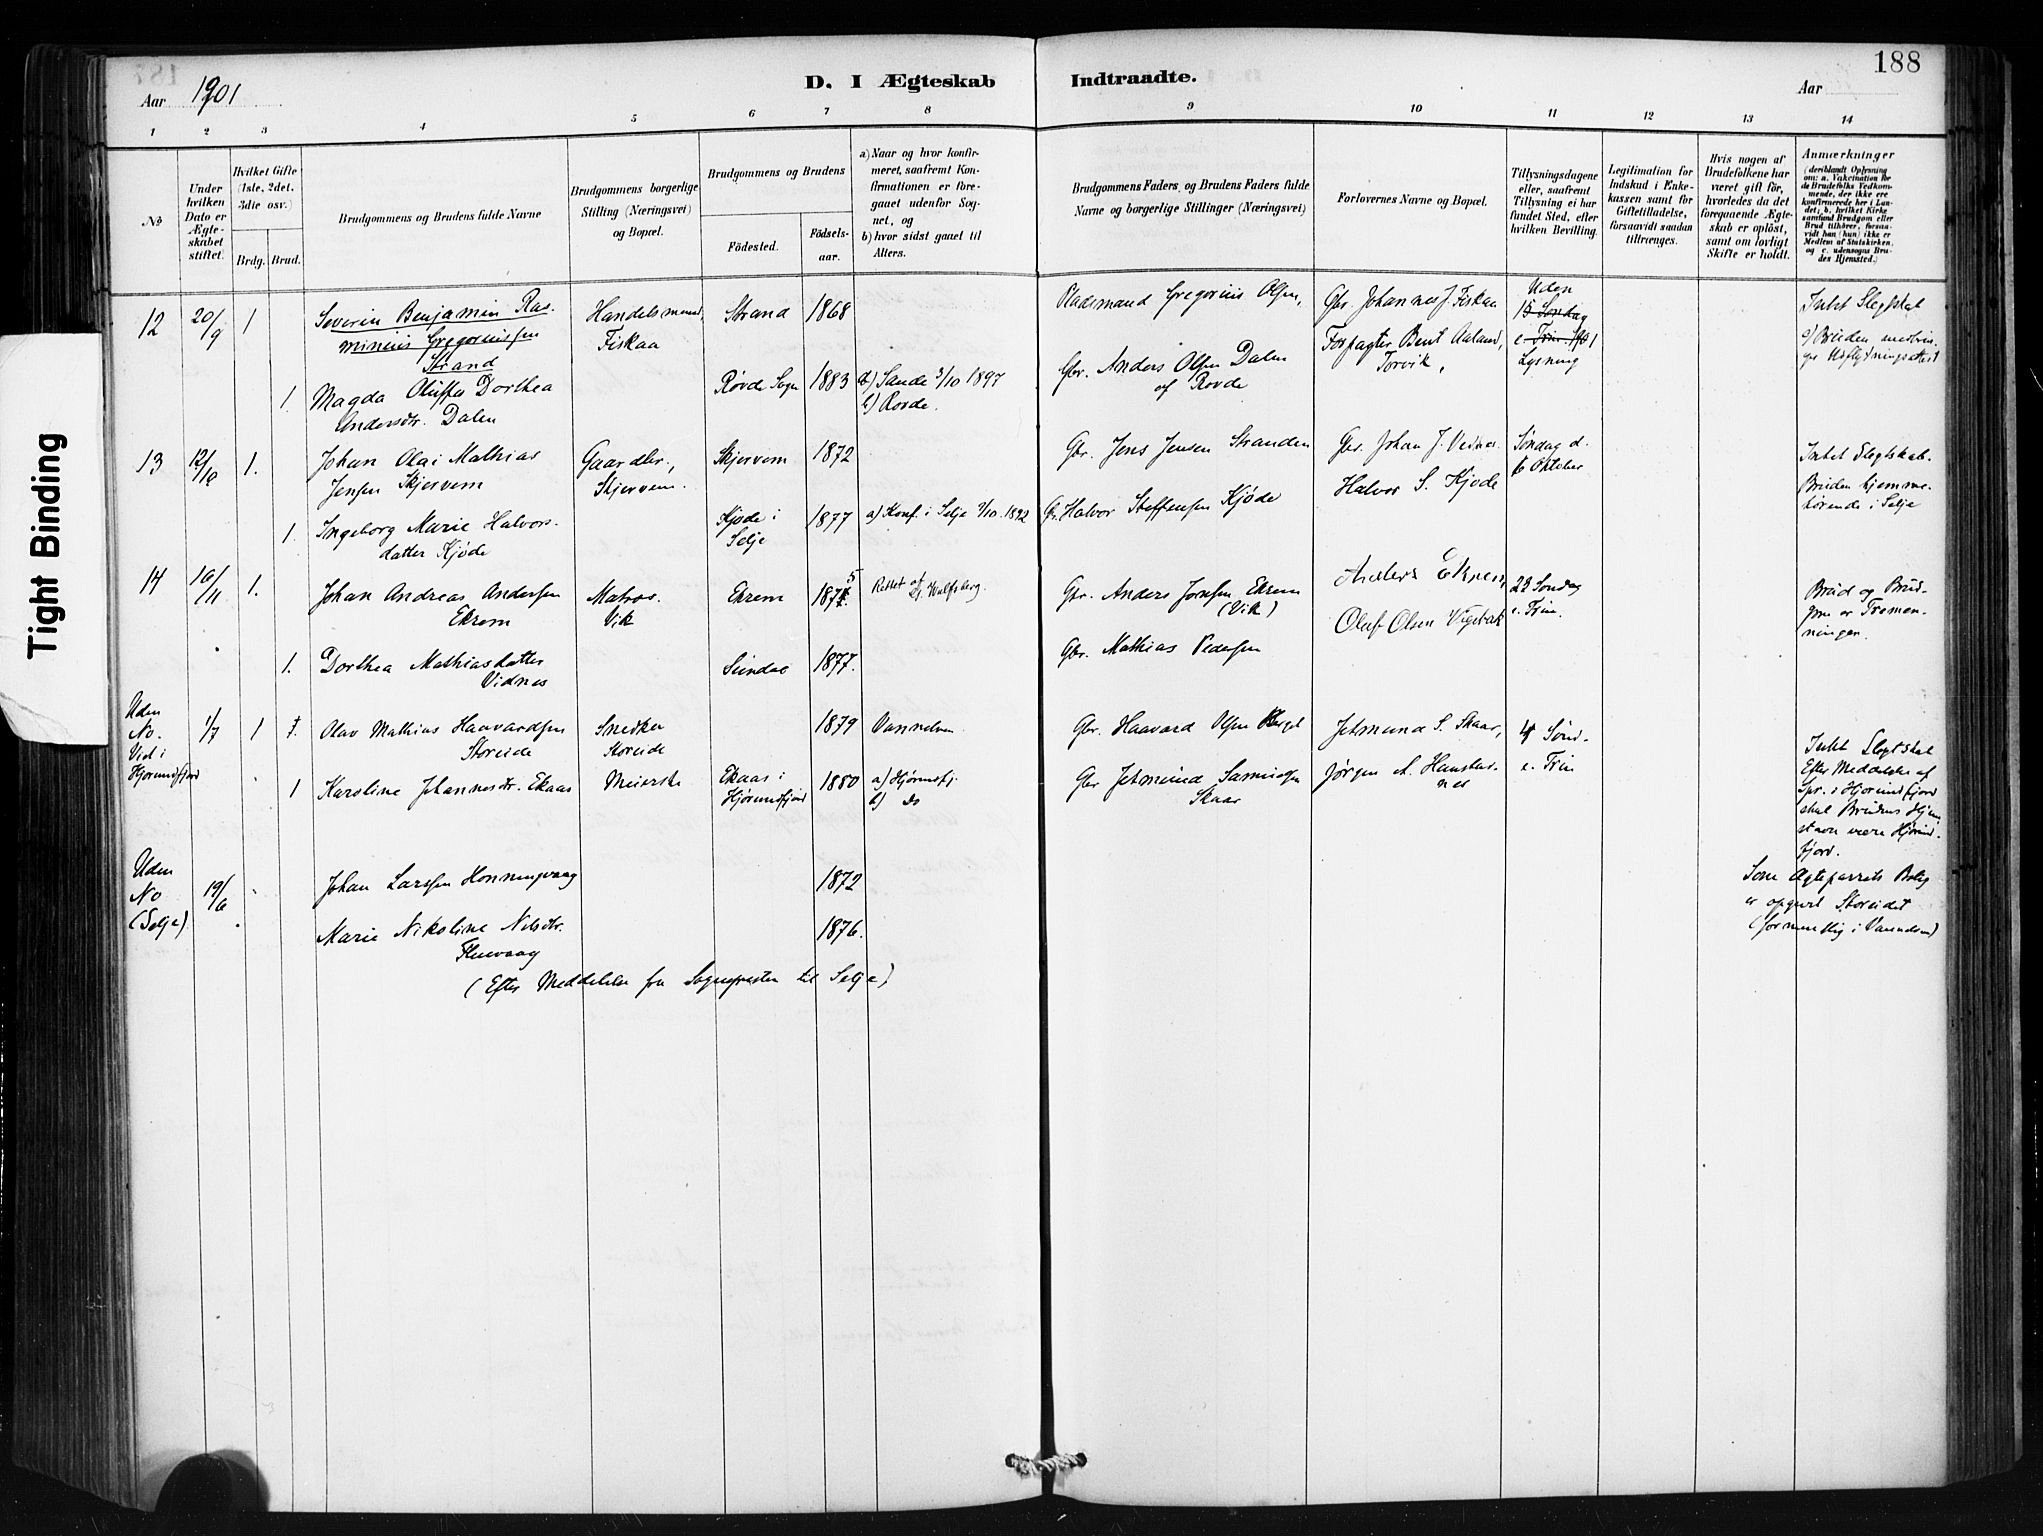 188
Aar 1901
D. I Ægteskab Indtraadte.
Aar
1 2 3 4 5 6 7 8 9 10 11 12 13 14
No
Under hvilken Dato er Ægteskabet stiftet.
Hvilket Gifte (1ste, 2det, 3die osv.)
Brdg. Brud.
Brudgommens og Brudens fulde Navne
Brudgommens borgerlige Stilling (Næringsvei) og Bopæl.
Brudgommens og Brudens
Födested.
Födselsaar.
a) Naar og hvor konfirmeret, saafremt Konfirmationen er foregaaet udenfor Sognet, og
b) hvor sidst gaaet til Alters.
Brudgommens Faders og Brudens Faders fulde Navne og borgerlige Stillinger (Næringsvei)
Forlovernes Navne og Bopæl.
Tillysningsdagene eller, saafremt Tillysning ei har fundet Sted, efter hvilken Bevilling.
Legitimation for Indskud i Enkekassen samt for Giftetilladelse, forsaavidt saadan tiltrænges.
Hvis nogen af Brudefolkene har været gift för, hvorledes da det foregaaende Ægteskab er oplöst, samt om lovligt Skifte er holdt.
Anmærkninger (deriblandt Oplysning om: a. Vakcination for de Brudefolks Vedkommende, der ikke ere konfirmerede her i Landet; b. hvilket Kirkesamfund Brudgom eller Brud tilhörer, forsaavidt han (hun) ikke er Medlem af Statskirken, og c. udensogns Brudes Hjemsted.)
12 20/9 1 Severin Benjamin Rasminius Gregoriussen Strand
Handelsmand, Fiskaa
Strand 1868
Pladsmand Gregorius Olsen,
Gbr. Johannes J. Fiskaa
Forpagter Bent Aaland, Torvik,
Uden
15 Søndag
e. Trin 1901
Lysning
Intet Slegtskab
1. Magda Oluffa Dorthea Andersdtr. Dalen
Røvde Sogn 1883 a) Sande 3/10 1897
b) Rovde.
Gbr. Anders Olsen Dalen af Rovde
13 12/10 1. Johan Olai Mathias Jensen Skjervem
Gaardbr., Skjervem.
Skjervem 1872
Gbr. Jens Jensen Stranden
Gbr. Johan J. Vednes
Halvor S. Kjøde
Søndag d. 6 Oktober
Intet Slegtskab.
Bruden hjemmehørende i Selje
1. Ingeborg Marie Halvorsdatter Kjøde
Kjøde i Selje 1877 a) Konf. i Selje 2/10. 1892
Gbr. Halvor Steffensen Kjøde
14 16/11 1. Johan Andreas Andersen Ekrem
Matros. Vik
Ekrem 1875
Rettet af Wulfsberg.
Gbr. Anders Josefsen Ekrem (Vik)
Anders Ekrem
Oluf Olsen
23 Søndag e. Trin.
Brud og Brudgom er Tremenninger.
1. Dorthea Mathiasdatter Vidnes
Sundal 1877.
Gbr. Mathias Pedersen
Uden No. Viet i Hjørundfjord
1/7 1 Olav Mathias Haavardsen Storeide
Snedker Storeide
1879 Vannelven.
Gbr. Haavard Olsen
Jetmund S. Skaar,
Jørgen A.
4 Sønd. e. Trin
Intet Slegtskab
Efter Meddelelse af Spr. i Hjørundfjord skal Brudens Hjemstavn være Hjørundfjord.
1 Karoline Johannesdtr. Ekaas
Meierske
Ekaas i Hjørundfjord 1880 a) Hjørundfj.
b) Do
Gbr Jetmund Samuelsen Skaar
Uden No (Selje)
19/6 Johan Larssen Honningvaag
1872
Som Ægteparrets Bolig er opgivet Storeidet (formentlig i Vannelven)
Marie Nikoline Nilsdtr.
1876.
(Efter Meddelelse fra Sognepresten til Selje)
Tight Binding